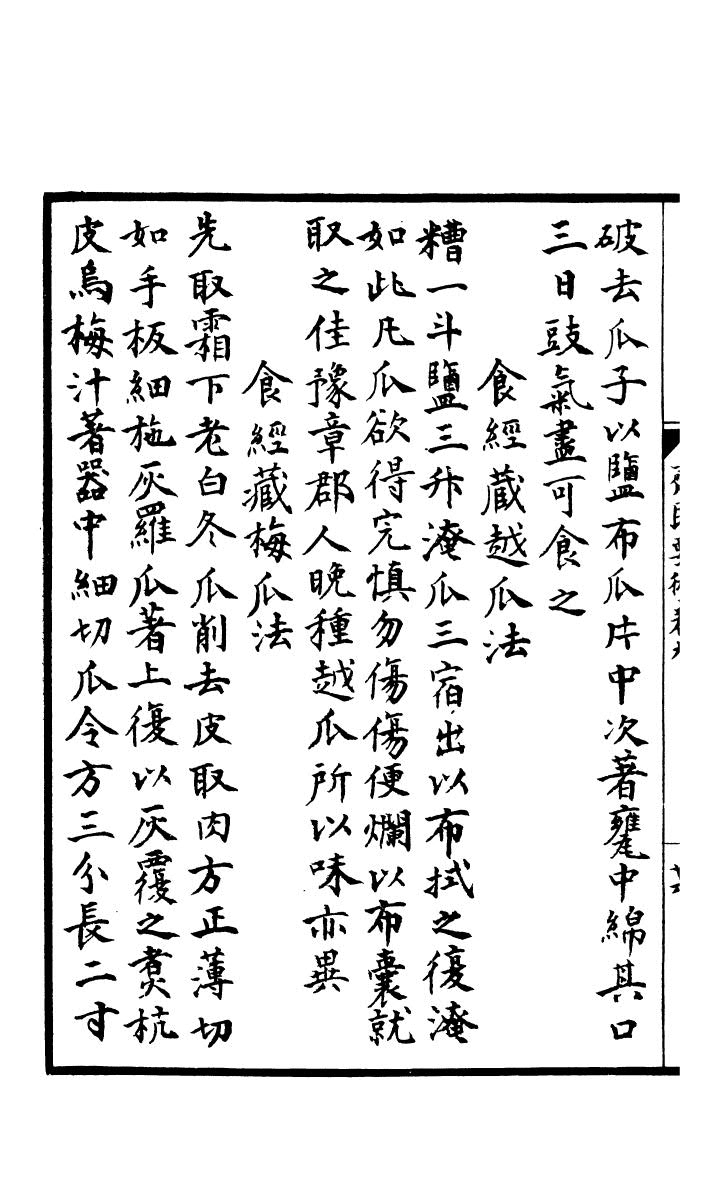 破去瓜子以鹽布瓜片中次著甕中綿其口
三日豉氣盡可食之
食經藏越瓜法
糟一斗鹽三升淹瓜三宿出以布拭之復淹
如此凡瓜欲得完慎勿傷傷便爛以布囊就
取之佳豫章郡人晚種越瓜所以味亦異
食經藏梅瓜法
先取霜下老白冬瓜削去皮取肉方正薄切
如手板細施灰羅瓜著上復以灰覆之煑杭
皮烏梅汁著器中細切瓜令方三分長二寸